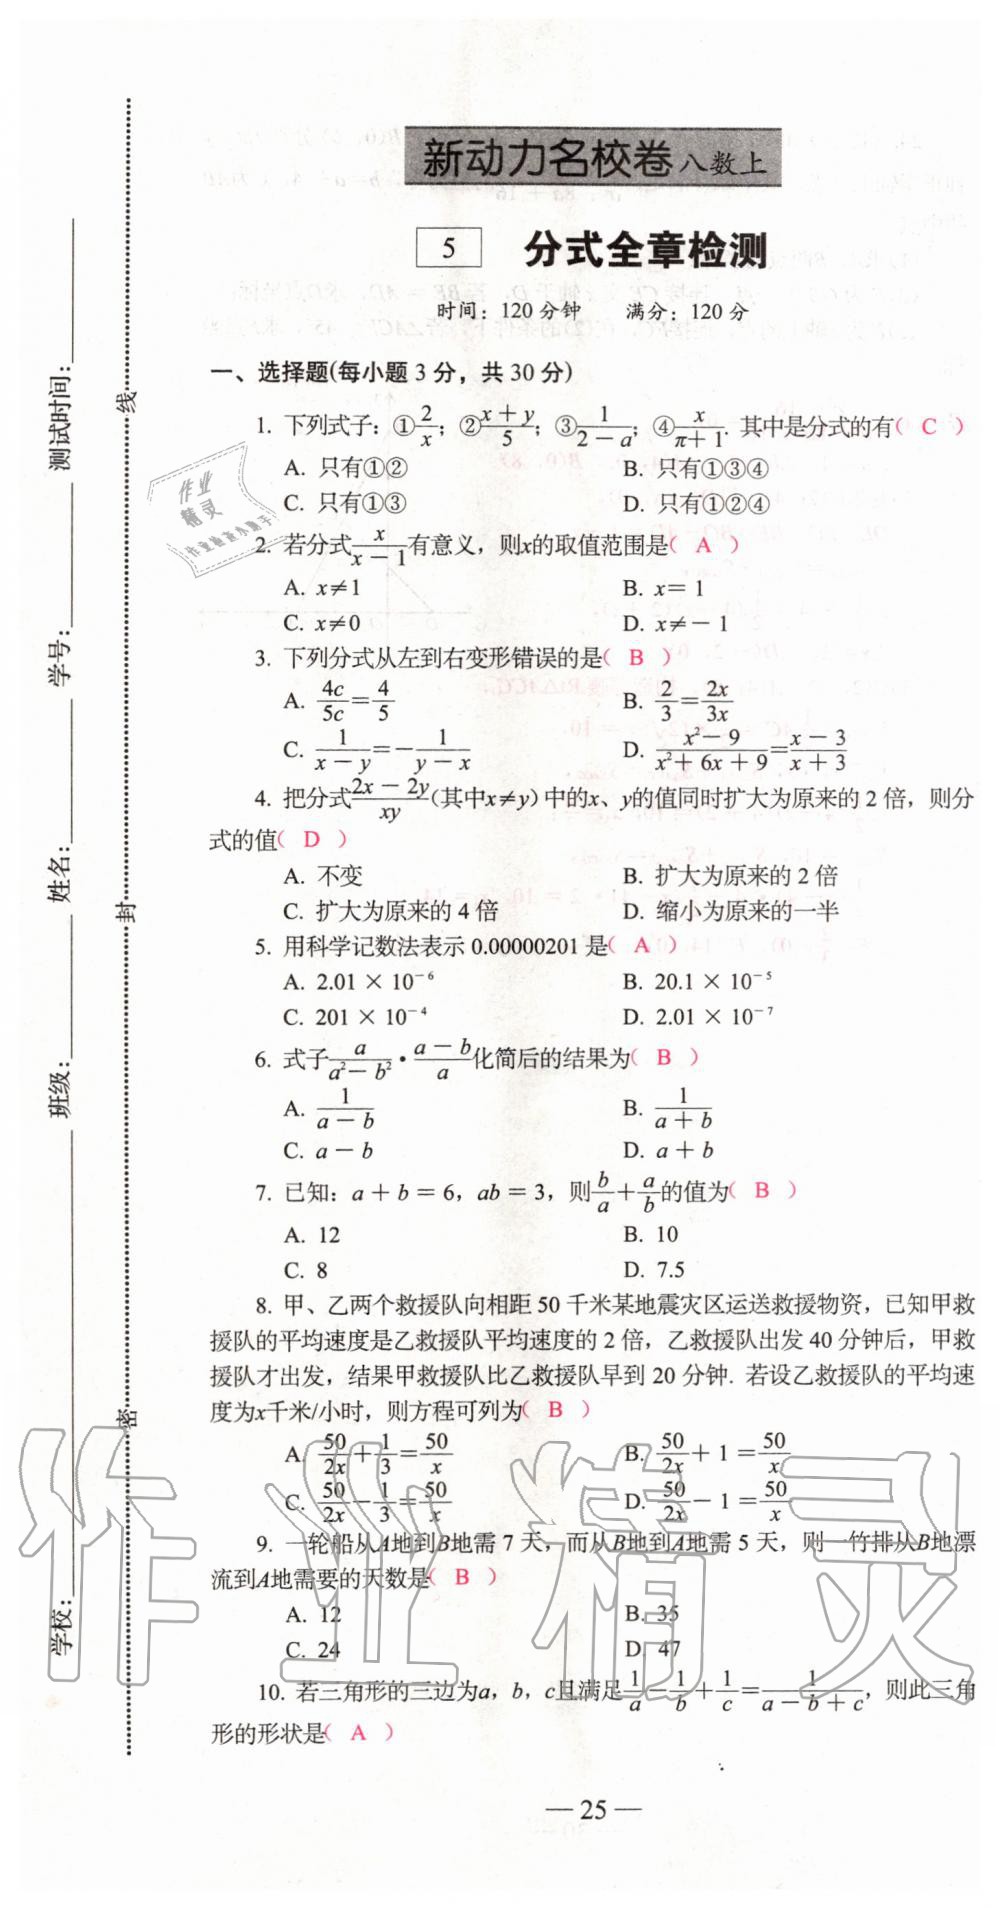 新动力名校卷 八数上
5 分式全章检测
时间：120分钟 满分：120分
一、选择题(每小题3分，共30分)
1. 下列式子：①2/x；②(x+y)/5；③1/(2-a)；④x/(π+1). 其中是分式的有( C )
A. 只有①② B. 只有①③④
C. 只有①③ D. 只有①②④
2. 若分式x/(x-1)有意义，则x的取值范围是( A )
A. x≠1 B. x=1
C. x≠0 D. x≠-1
3. 下列分式从左到右变形错误的是( B )
A. 4c/5c=4/5 B. 2/3=2x/3x
C. 1/(x-y)=-1/(y-x) D. (x²-9)/(x²+6x+9)=(x-3)/(x+3)
4. 把分式(2x-2y)/xy(其中x≠y)中的x、y的值同时扩大为原来的2倍，则分
式的值( D )
A. 不变 B. 扩大为原来的2倍
C. 扩大为原来的4倍 D. 缩小为原来的一半
5. 用科学记数法表示0.00000201是( A )
A. 2.01×10⁻⁶ B. 20.1×10⁻⁵
C. 201×10⁻⁴ D. 2.01×10⁻⁷
6. 式子a/(a²-b²)·(a-b)/a化简后的结果为( B )
A. 1/(a-b) B. 1/(a+b)
C. a-b D. a+b
7. 已知：a+b=6，ab=3，则b/a+a/b的值为( B )
A. 12 B. 10
C. 8 D. 7.5
8. 甲、乙两个救援队向相距50千米某地震灾区运送救援物资，已知甲救
援队的平均速度是乙救援队平均速度的2倍，乙救援队出发40分钟后，甲救
援队才出发，结果甲救援队比乙救援队早到20分钟. 若设乙救援队的平均速
度为x千米/小时，则方程可列为( B )
A. 50/2x+1/3=50/x B. 50/2x+1=50/x
C. 50/2x-1/3=50/x D. 50/2x-1=50/x
9. 一轮船从A地到B地需7天，而从B地到A地需5天，则一竹排从B地漂
流到A地需要的天数是( B )
A. 12 B. 35
C. 24 D. 47
10. 若三角形的三边为a，b，c且满足1/a-1/b+1/c=1/(a-b+c)，则此三角
形的形状是( A )
— 25 —
学校： 班级： 姓名： 学号： 测试时间：
密 封 线
作业
精灵
作业检查小助手
作业精灵